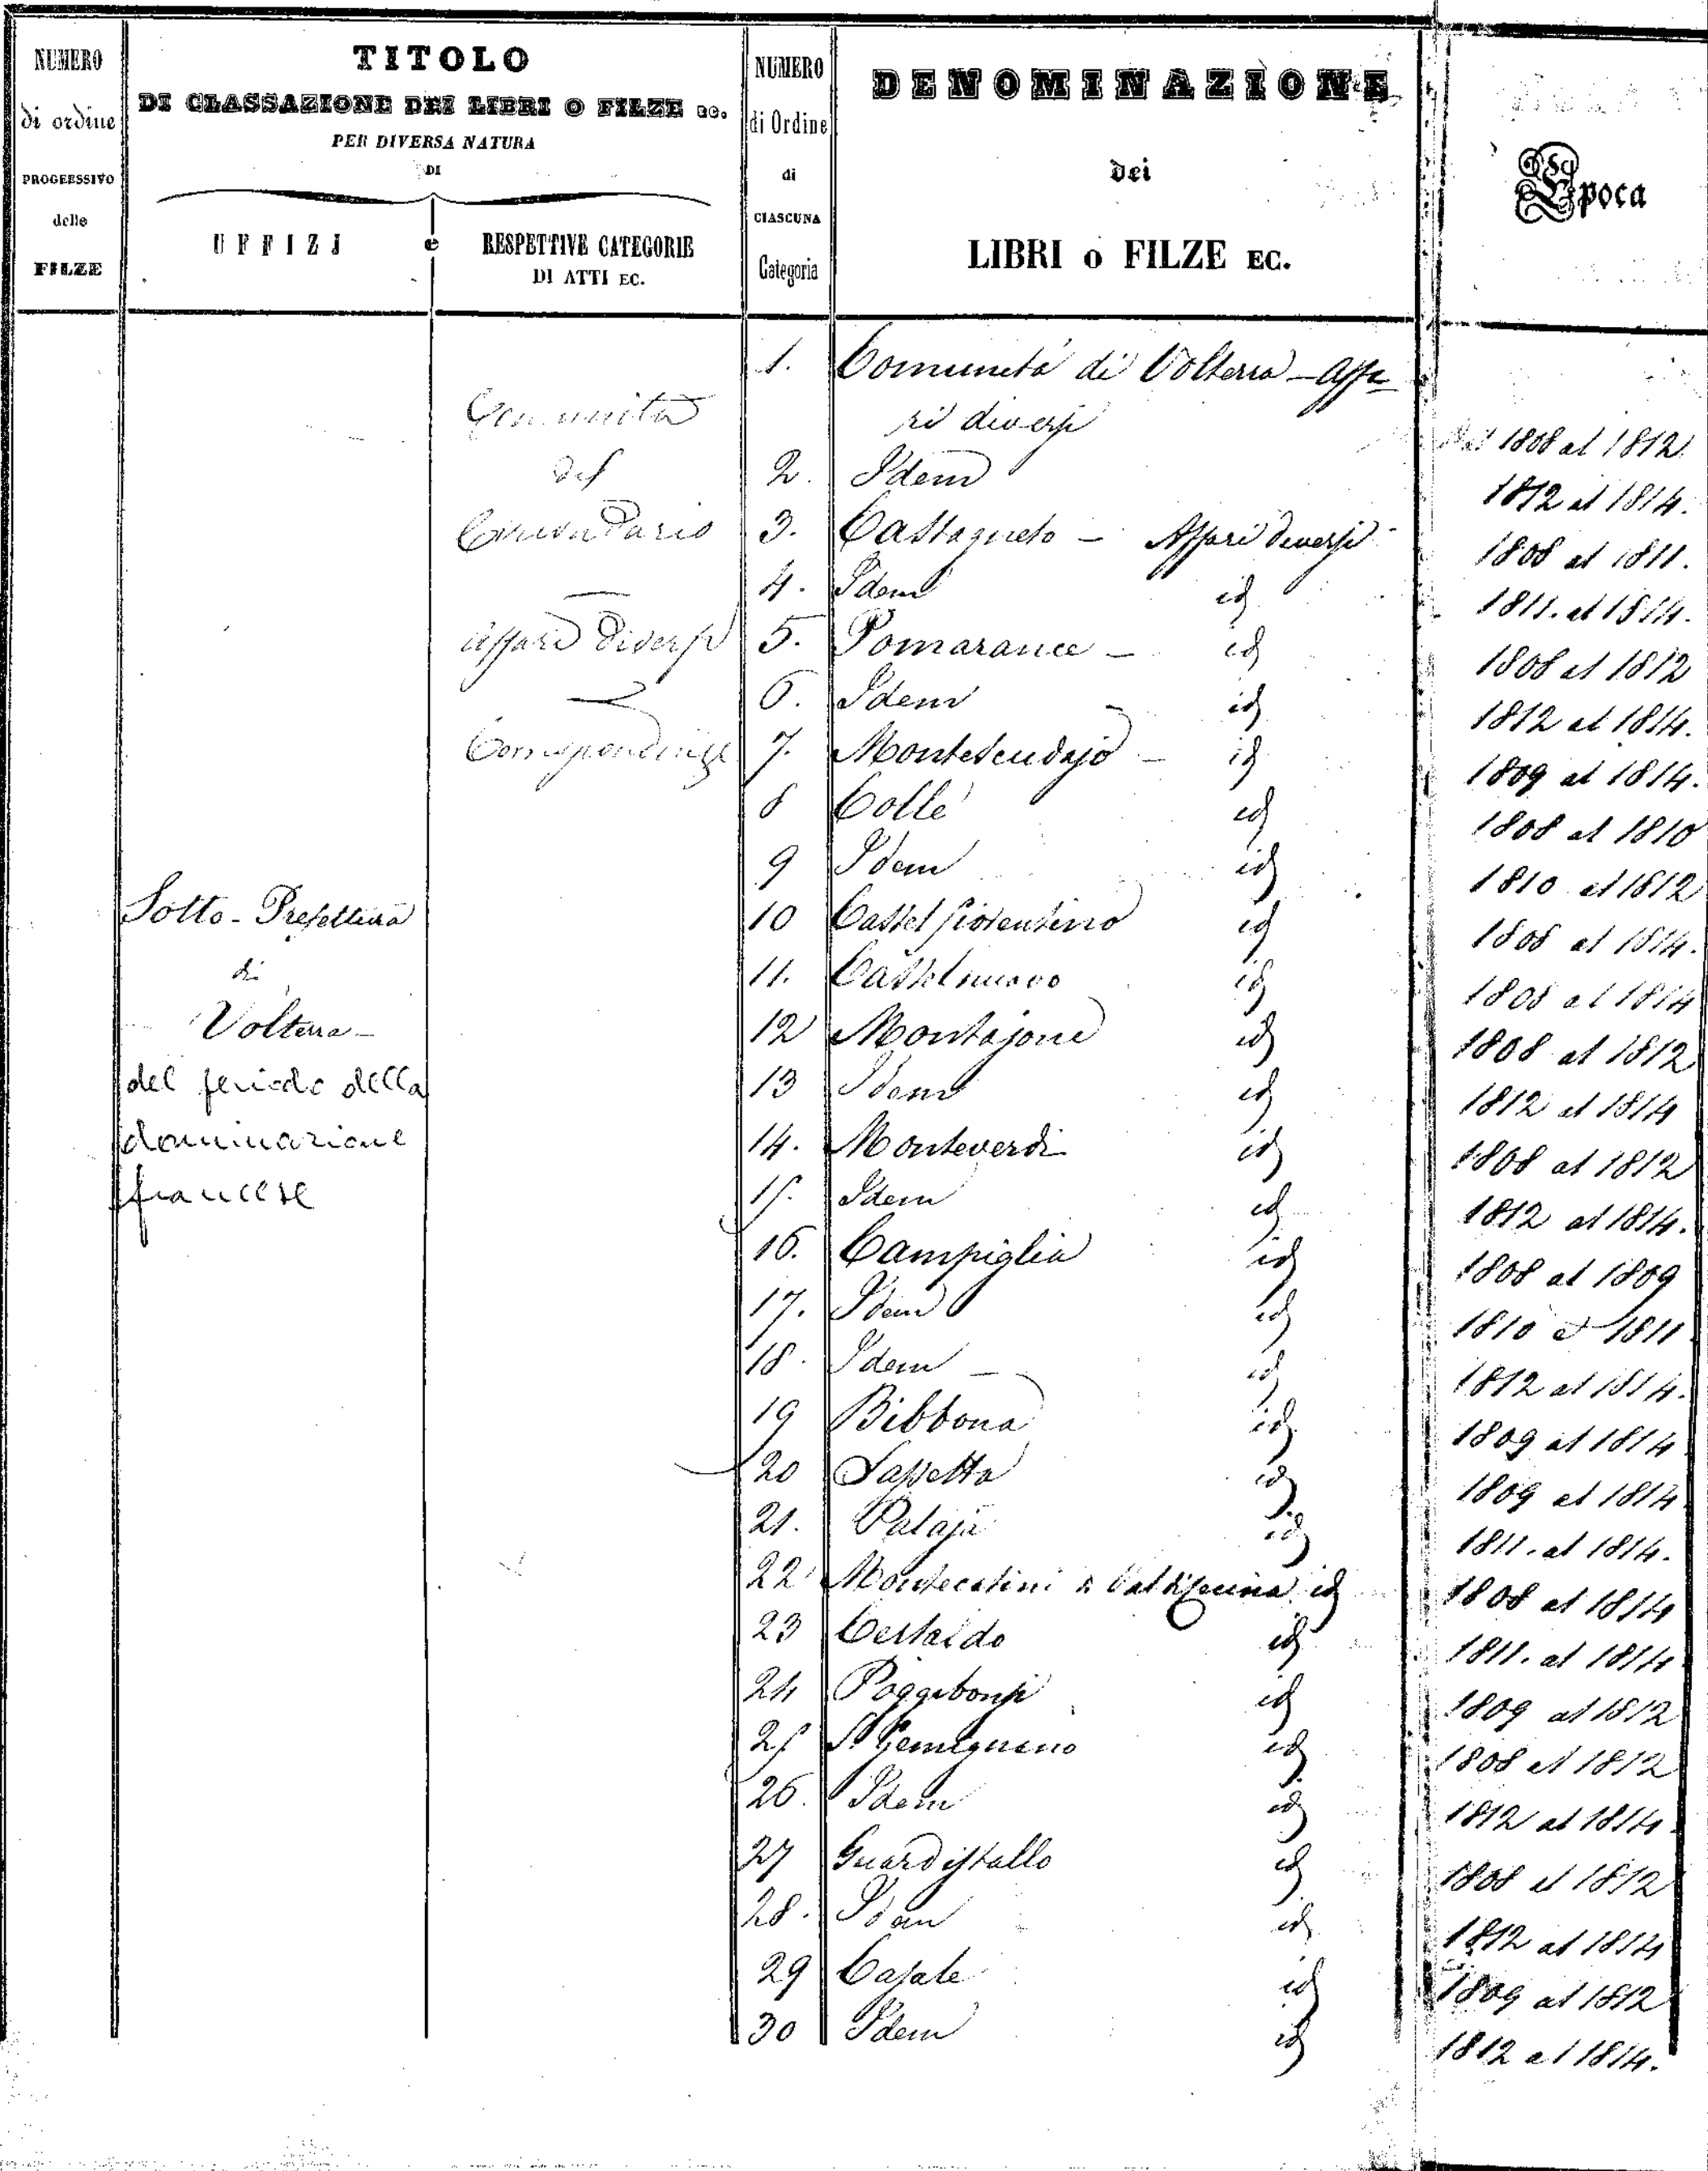 NUMERO
di ordine
PROGRESSIVO
delle
FILZE
TITOLO
DI CLASSAZIONE DEI LIBRI O FILZE ec.
PER DIVERSA NATURA
DI
UFFIZJ e RESPETTIVE CATEGORIE
DI ATTI EC.
NUMERO
di Ordine
di
CIASCUNA
Categoria
DENOMINAZIONE
dei
LIBRI o FILZE EC.
Epoca
Sotto-Prefettura
di
Volterra
del periodo della
dominazione
francese
Comunità
del
Circondario
affari diversi
Corrispondenze
1. Comunità di Volterra - Affa
ri diversi 1808 al 1812
2. Idem 1812 al 1814.
3. Castagneto - Affari diversi 1808 al 1811.
4. Idem id 1811. al 1814.
5. Pomarance - id 1808 al 1812
6. Idem id 1812 al 1814.
7. Montescudajo - id 1809 al 1814.
8 Colle id 1808 al 1810
9 Idem id 1810 al 1812
10 Castel fiorentino id 1808 al 1814.
11. Castelnuovo id 1808 al 1814
12 Montajone id 1808 al 1812
13 Idem id 1812 al 1814
14. Monteverdi id 1808 al 1812
15. Idem id 1812 al 1814.
16. Campiglia id 1808 al 1809
17. Idem id 1810 al 1811
18. Idem - id 1812 al 1814.
19 Bibbona id 1809 al 1814
20 Sassetta id 1809 al 1814
21. Palaja id 1811. al 1814.
22 Montecatini di Val di Cecina id 1808 al 1814
23 Certaldo id 1811. al 1814
24 Poggibonsi id 1809 al 1812
25 S. Gemignano id 1808 al 1812
26. Idem id 1812 al 1814
27 Guardistallo id 1808 al 1812
28. Idem id 1812 al 1814
29 Casale id 1809 al 1812
30 Idem id 1812 al 1814.